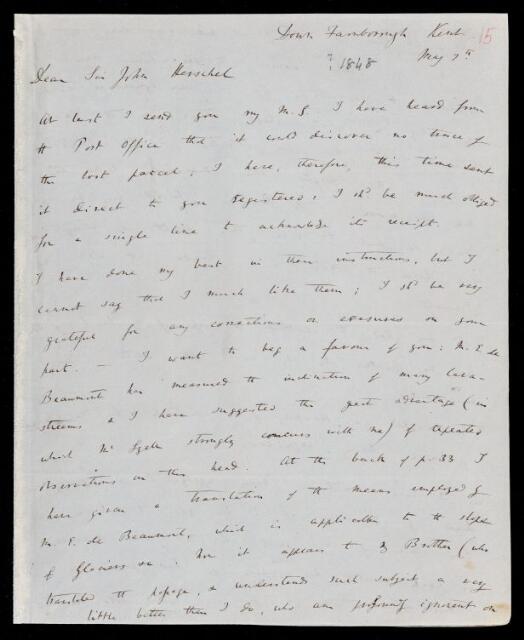 Down Farnborough Kent 15
? 1848 May 7th
Dear Sir John Herschel
At last I send you my M.S. I have heard from
the Post Office that it could discover no trace of
the lost parcel; I have, therefore, this time sent
it direct to you registered; I shd be much obliged
for a single line to acknowledge its receipt.
I have done my best in these instructions, but I
cannot say that I much like them; I shd be very
grateful for any corrections or erasures on your
part. — I want to beg a favour of you: M. E. de
Beaumont has measured the inclination of many lava-
streams & I have suggested the great advantage (in
which Mr Lyell strongly concurs with me) of repeated
observations on this head. At the back of p. 33 I
have given a translation of the means employed by
M. E. de Beaumont, which is applicable to the slope
of Glaciers &c. Now it appears to my Brother (who
translated the passage, & understands such subjects a very
little better than I do, who am profoundly ignorant on